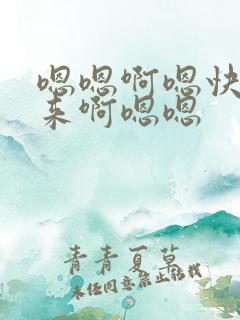 嗯嗯啊嗯快
来啊嗯嗯
青青夏草
未经同意禁止转载